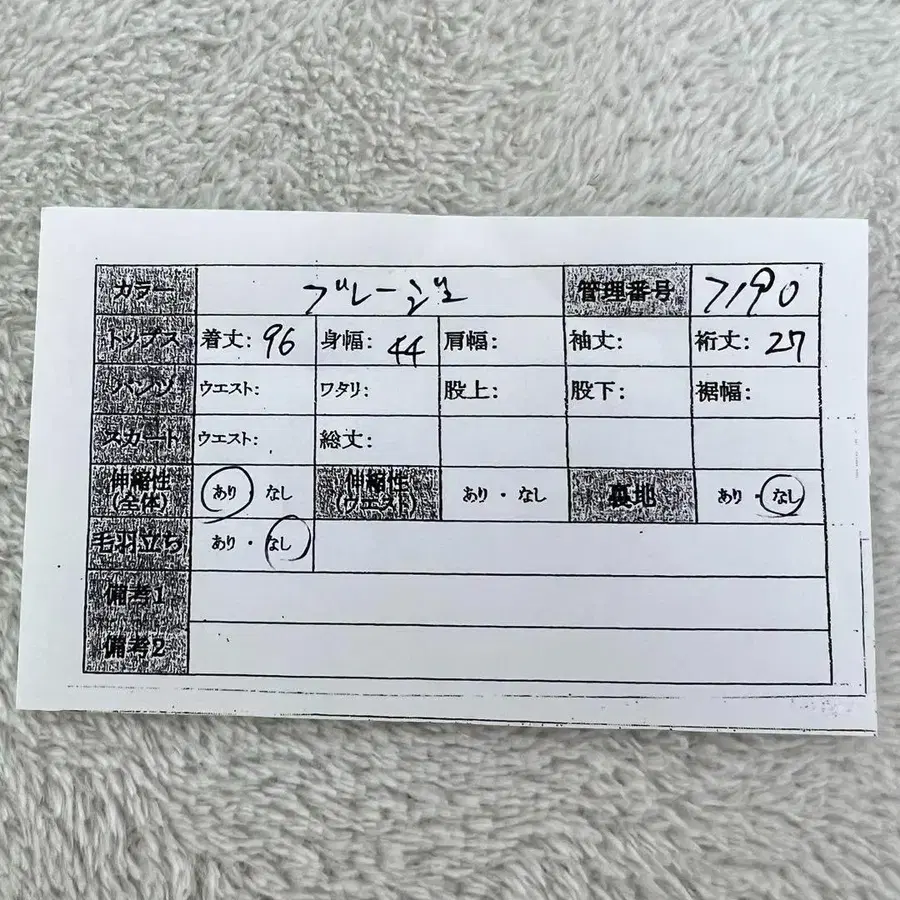 カラー グレージュ 管理番号 7190
トップス 着丈: 96 身幅: 44 肩幅: 袖丈: 裄丈: 27
パンツ ウエスト: ワタリ: 股上: 股下: 裾幅:
スカート ウエスト: 総丈:
伸縮性(全体) あり・なし 伸縮性(ウエスト) あり・なし 裏地 あり・なし
毛羽立ち あり・なし
備考1
備考2